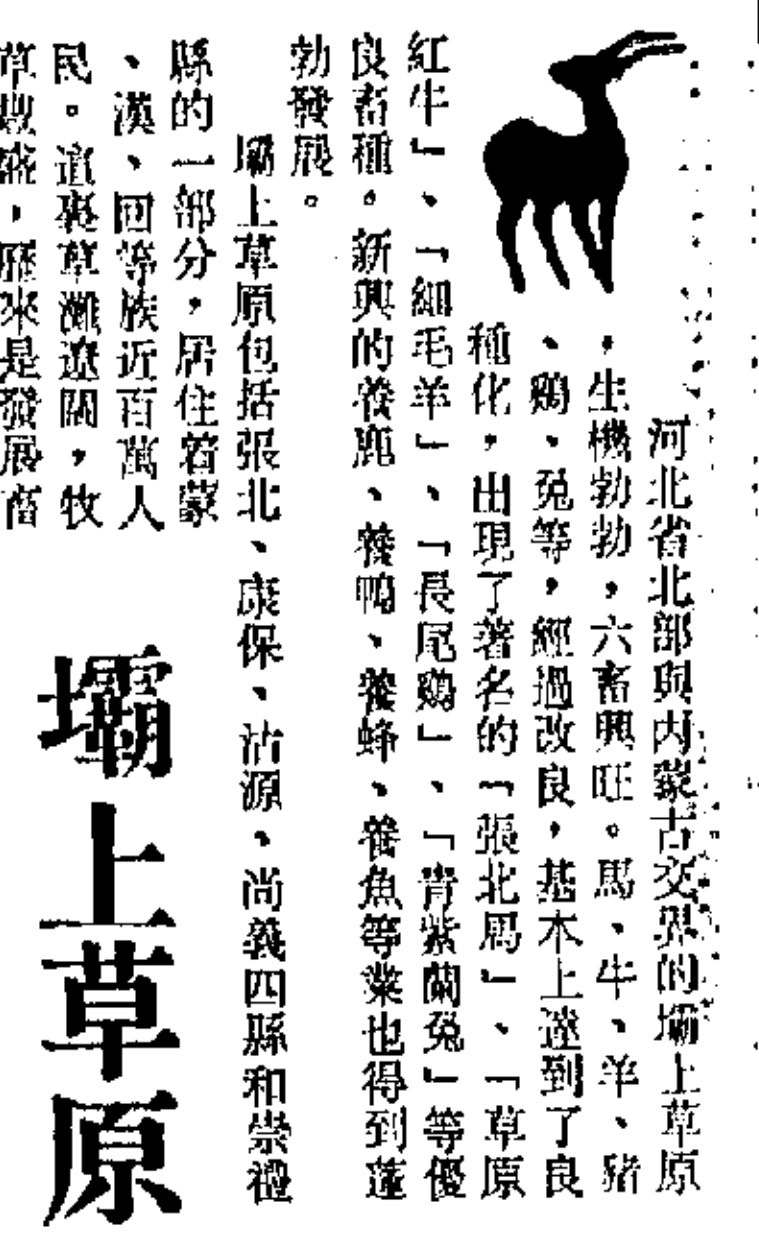 壩上草原
河北省北部與內蒙古交界的壩上草原
，生機勃勃，六畜興旺。馬、牛、羊、豬
、鷄、兔等，經過改良，基本上達到了良
種化，出現了著名的「張北馬」、「草原
紅牛」、「細毛羊」、「長尾鷄」、「青紫蘭兔」等優
良畜種。新興的養鹿、養鴨、養蜂、養魚等業也得到蓬
勃發展。
壩上草原包括張北、康保、沽源、尚義四縣和崇禮
縣的一部分，居住着蒙
、漢、回等族近百萬人
民。這裏草灘遼闊，牧
草豐盛，歷來是發展畜